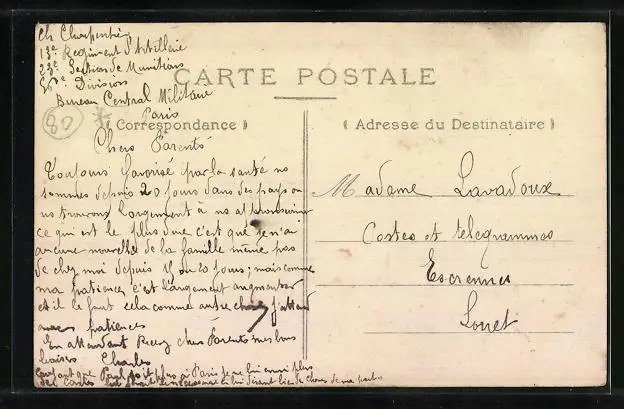 Ch Charpentier
13e Regiment d'Artillerie
23e Section de Munitions
Division
Bureau Central Militaire
Paris
80
CARTE POSTALE
Correspondance
Adresse du Destinataire
Chers Parents
Toujours favorisé par la santé no
sommes depuis 20 jours dans des pays ou
ns trouvons largement à ns
ce qui est le plus dur c'est que je n'ai
aucune nouvelle de la famille même pas
de chez moi depuis 15 ou 20 jours ; mais comme
ma patience c'est largement
et il le faut cela comme autre chose j'attend
avec patience
En attendant Recevez chers Parents mes bons
baisers Charles
que Paul soit plus à Paris je ne lui écrit plus
de cartes de lui disant bien de choses de ma part
Madame Lavadoux
Postes et telegrammes
Escrennes
Loiret